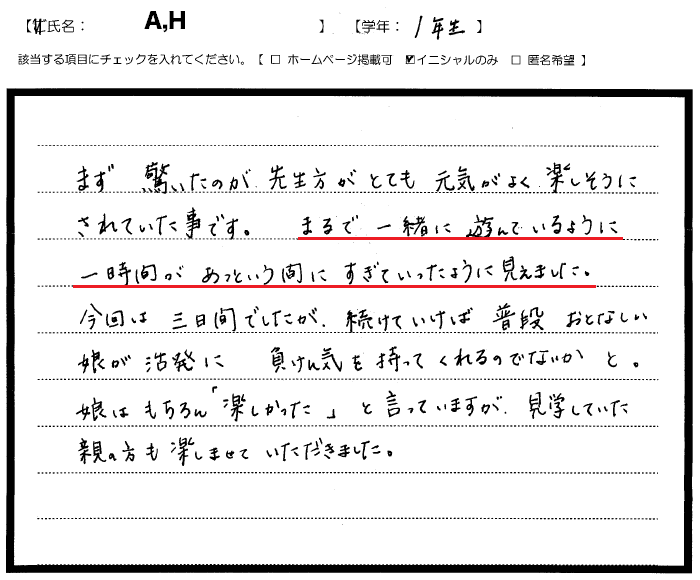 【氏名： A,H 】 【学年： 1年生 】
該当する項目にチェックを入れてください。【 □ ホームページ掲載可 ☑イニシャルのみ □ 匿名希望 】
まず 驚いたのが 先生方が とても 元気がよく 楽しそうに
されていた事です。 まるで 一緒に 遊んでいるように
一時間が あっという間に すぎていったように見えました。
今回は 三日間でしたが、続けていけば 普段 おとなしい
娘が 活発に 負けん気を 持って くれるのでないか と。
娘は もちろん「楽しかった」 と 言っていますが、見学していた
親の方も 楽しませて いただきました。